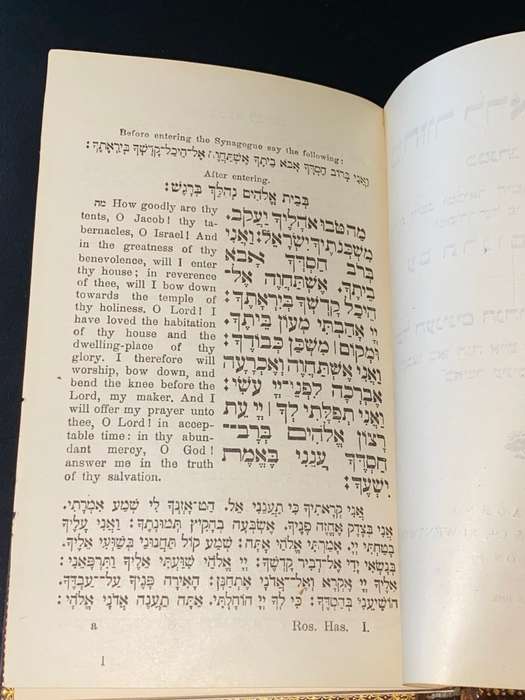 Before entering the Synagogue say the following:
וַאֲנִי בְּרוֹב חַסְדְּךָ אָבֹא בֵיתֶךָ אֶשְׁתַּחֲוֶה אֶל־הֵיכַל־קָדְשְׁךָ בְּיִרְאָתֶךָ:
After entering.
בְּבֵית אֱלֹהִים נְהַלֵּךְ בְּרָגֶשׁ:
מה How goodly are thy
tents, O Jacob! thy ta-
bernacles, O Israel! And
in the greatness of thy
benevolence, will I enter
thy house; in reverence
of thee, will I bow down
towards the temple of
thy holiness. O Lord! I
have loved the habitation
of thy house and the
dwelling-place of thy
glory. I therefore will
worship, bow down, and
bend the knee before the
Lord, my maker. And I
will offer my prayer unto
thee, O Lord! in accep-
table time: in thy abun-
dant mercy, O God!
answer me in the truth
of thy salvation.
מַה־טֹּבוּ אֹהָלֶיךָ יַעֲקֹב.
מִשְׁכְּנֹתֶיךָ יִשְׂרָאֵל: וַאֲנִי
בְּרֹב חַסְדְּךָ אָבֹא
בֵיתֶךָ. אֶשְׁתַּחֲוֶה אֶל־
הֵיכַל קָדְשְׁךָ בְּיִרְאָתֶךָ:
יְיָ אָהַבְתִּי מְעוֹן בֵּיתֶךָ.
וּמְקוֹם | מִשְׁכַּן כְּבוֹדֶךָ:
וַאֲנִי אֶשְׁתַּחֲוֶה וְאֶכְרָעָה
אֶבְרְכָה לִפְנֵי־יְיָ עֹשִׂי:
וַאֲנִי תְפִלָּתִי לְךָ | יְיָ עֵת
רָצוֹן אֱלֹהִים בְּרָב־
חַסְדֶּךָ עֲנֵנִי בֶּאֱמֶת
יִשְׁעֶךָ:
אֲנִי קְרָאתִיךָ כִי תַעֲנֵנִי אֵל. הַט־אָזְנְךָ לִי שְׁמַע אִמְרָתִי.
אֲנִי בְּצֶדֶק אֶחֱזֶה פָנֶיךָ. אֶשְׂבְּעָה בְהָקִיץ תְּמוּנָתֶךָ: וַאֲנִי עָלֶיךָ
בָטַחְתִּי יְיָ. אָמַרְתִּי אֱלֹהַי אָתָּה: שְׁמַע קוֹל תַּחֲנוּנַי בְּשַׁוְּעִי אֵלֶיךָ.
בְּנָשְׂאִי יָדַי אֶל־דְּבִיר קָדְשֶׁךָ: יְיָ אֱלֹהָי שִׁוַּעְתִּי אֵלֶיךָ וַתִּרְפָּאֵנִי:
אֵלֶיךָ יְיָ אֶקְרָא וְאֶל־אֲדֹנָי אֶתְחַנָּן: הָאִירָה פָנֶיךָ עַל־עַבְדֶּךָ.
הוֹשִׁיעֵנִי בְחַסְדֶּךָ: כִּי לְךָ יְיָ הוֹחָלְתִּי. אַתָּה תַעֲנֶה אֲדֹנָי אֱלֹהָי:
a Ros. Has. I.
1